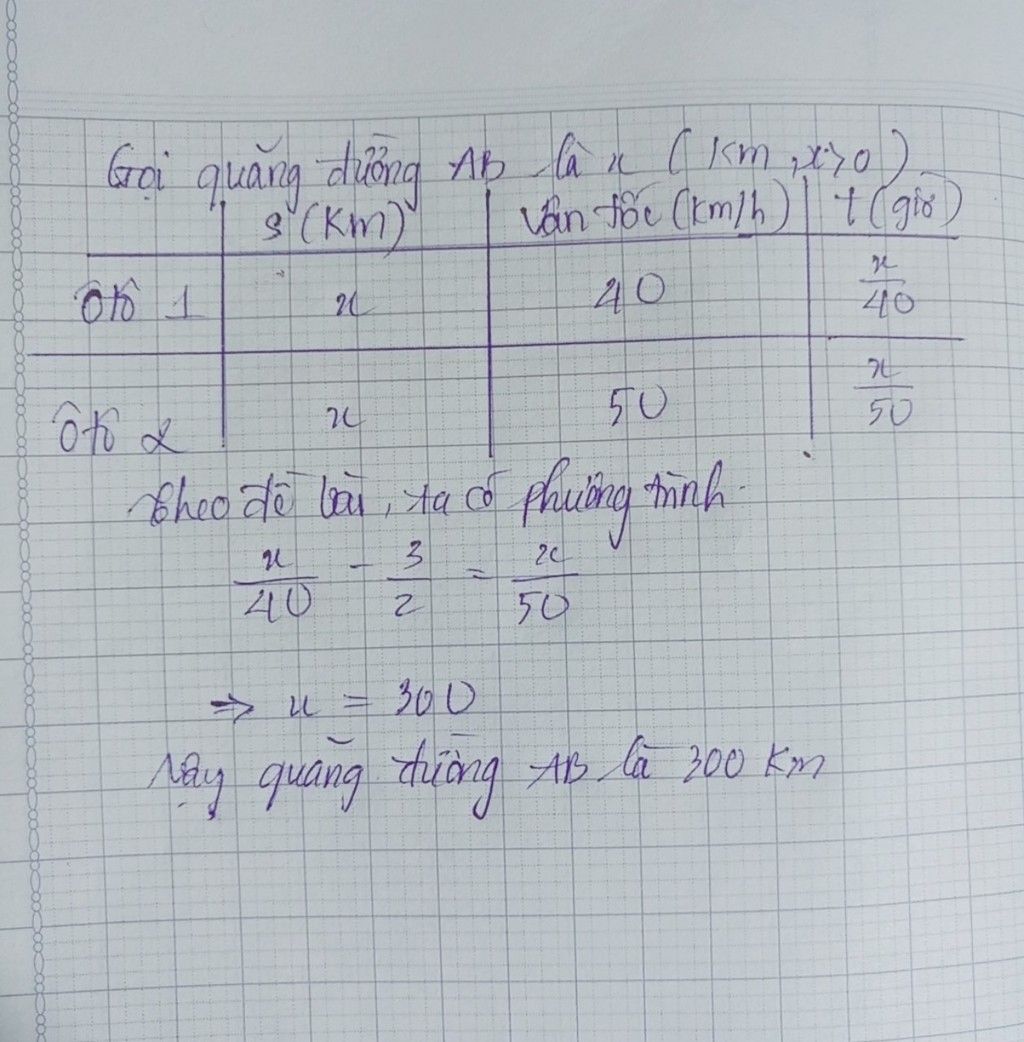 Gọi quãng đường AB là x (Km, x>0)
s (Km) Vận tốc (Km/h) t (giờ)
Ôtô 1 x 40 x/40
Ôtô 2 x 50 x/50
Theo đề bài, ta có phương trình
x/40 - 3/2 = x/50
⇒ x = 300
Vậy quãng đường AB là 300 Km